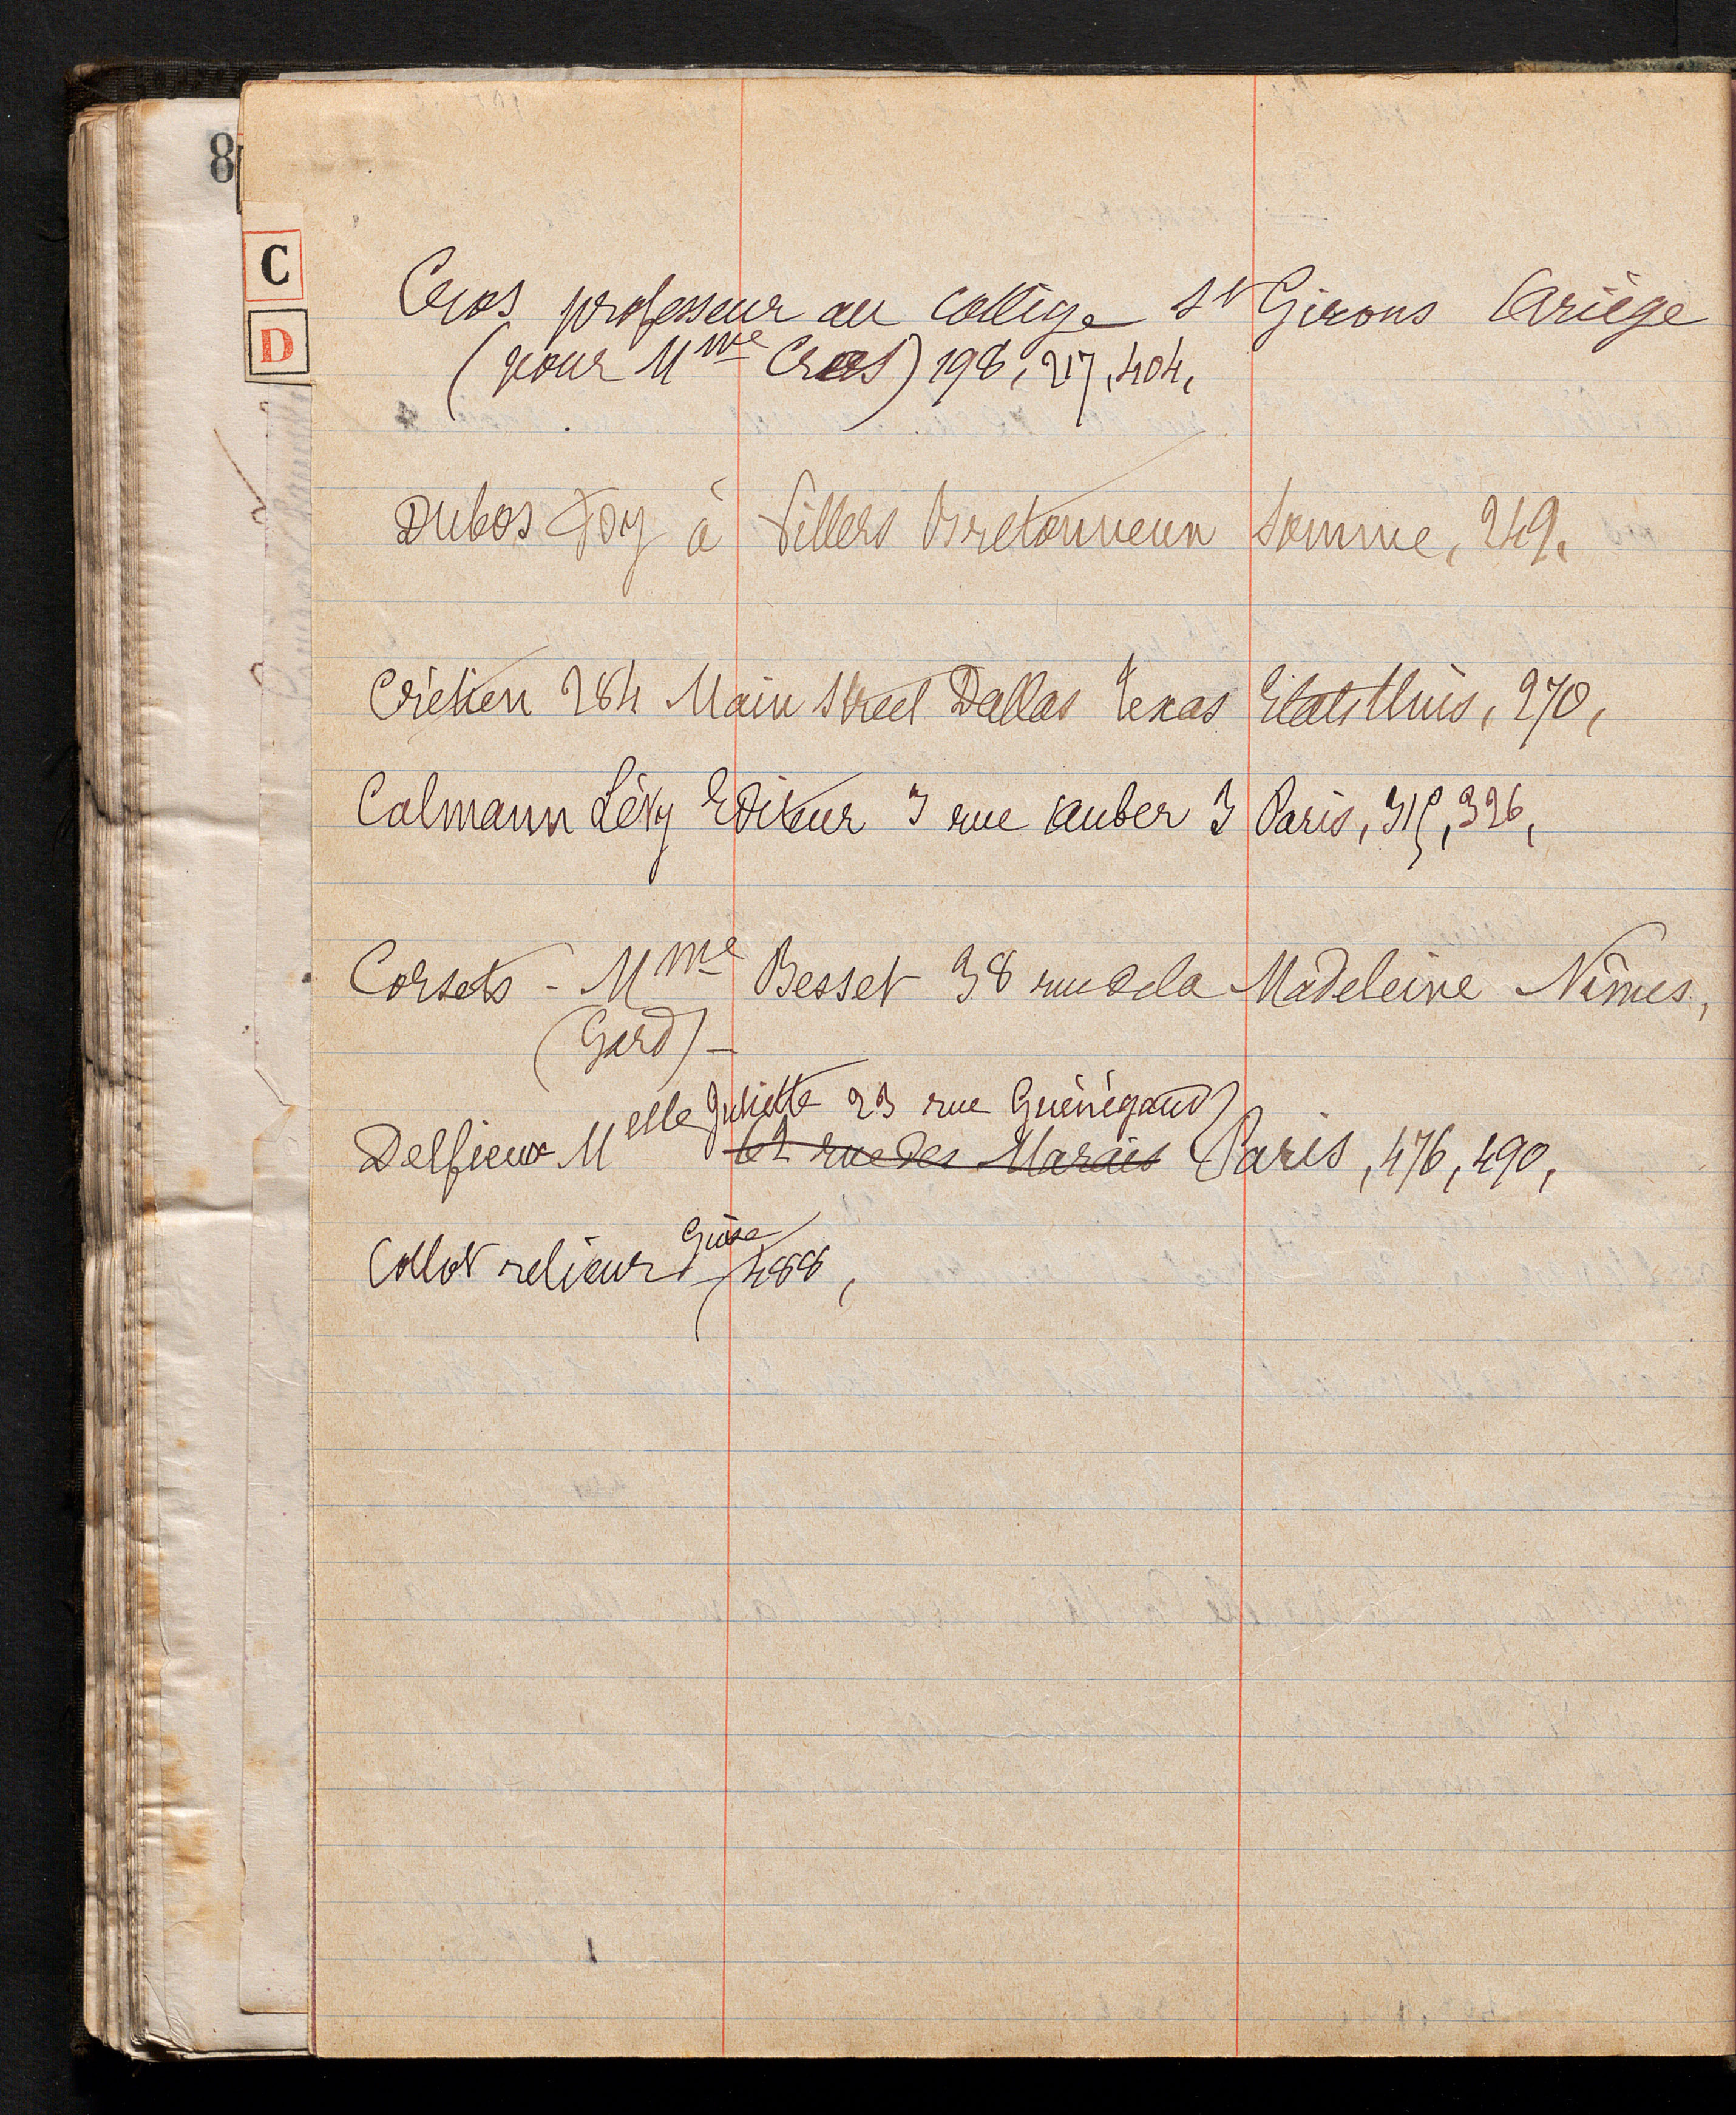 8
C
D
Cros professeur au collège St Girons Ariège
(pour Mme Cros) 198, 217, 404,
Dubos Foy à Villers Bretonneux Somme, 249,
Crétien 284 Main Street Dallas Texas Etats Unis, 270,
Calmann Lévy Editeur 3 rue Auber 3 Paris, 315, 326,
Corsets - Mme Besset 38 rue de la Madeleine Nîmes,
(Gard) -
Juliette 23 rue Guénégaud
Delfieux Melle 62 rue des Marais Paris, 476, 490,
Guise
Collot relieur 488,